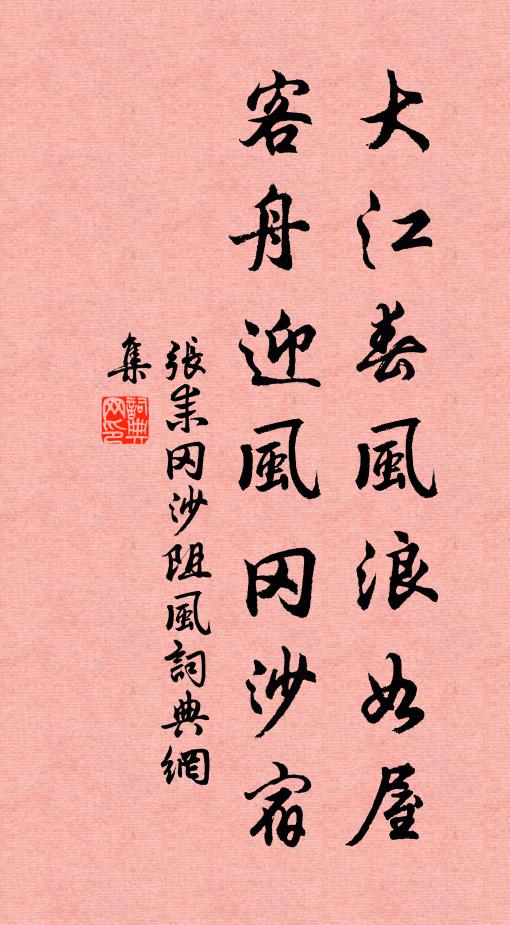 大江春風浪如屋
客舟迎風罔沙宿
張耒罔沙阻風詞典網
集
詞典
网印